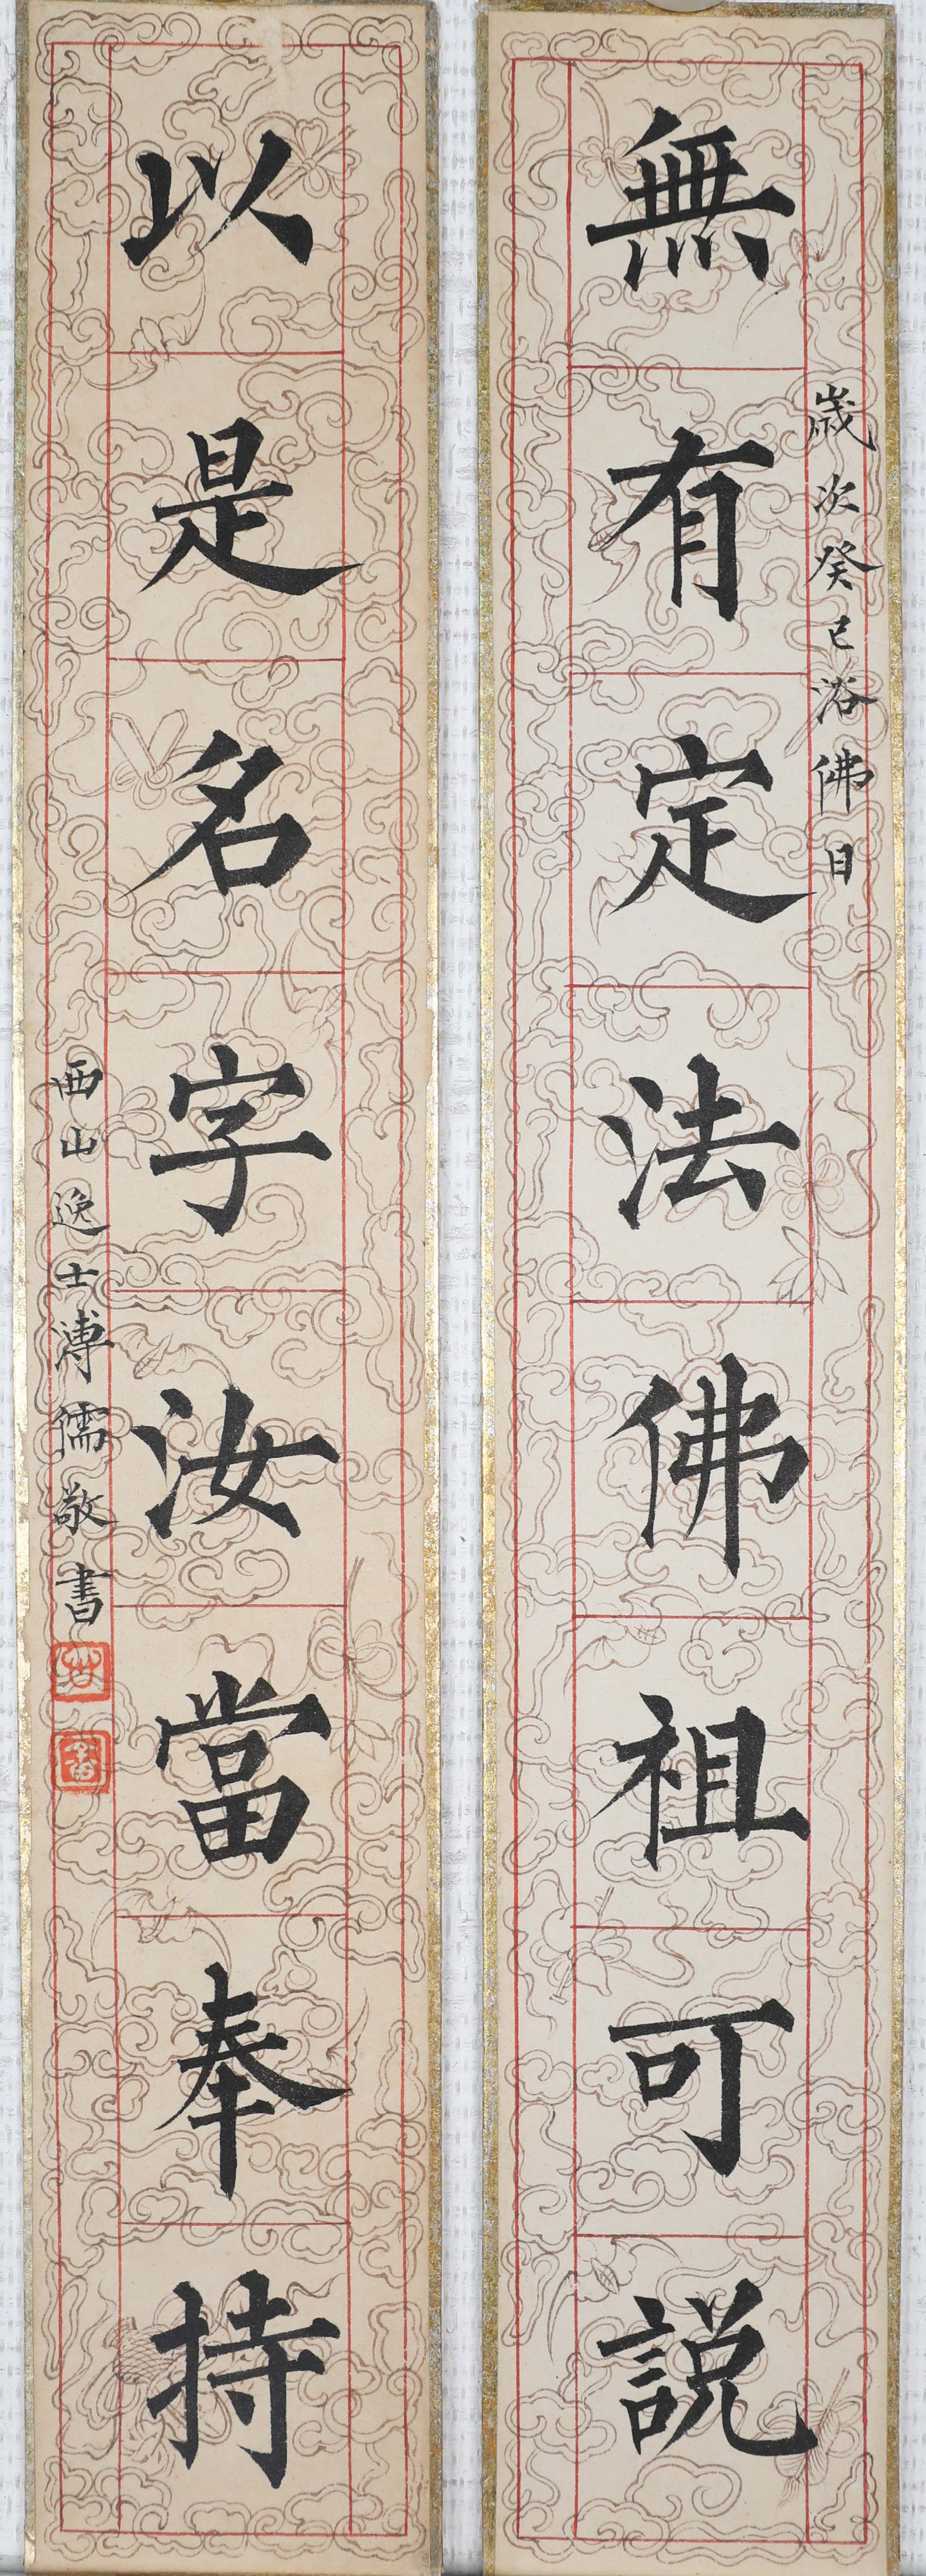 歲次癸巳浴佛日
無有定法佛祖可說
以是名字汝當奉持
西山逸士溥儒敬書